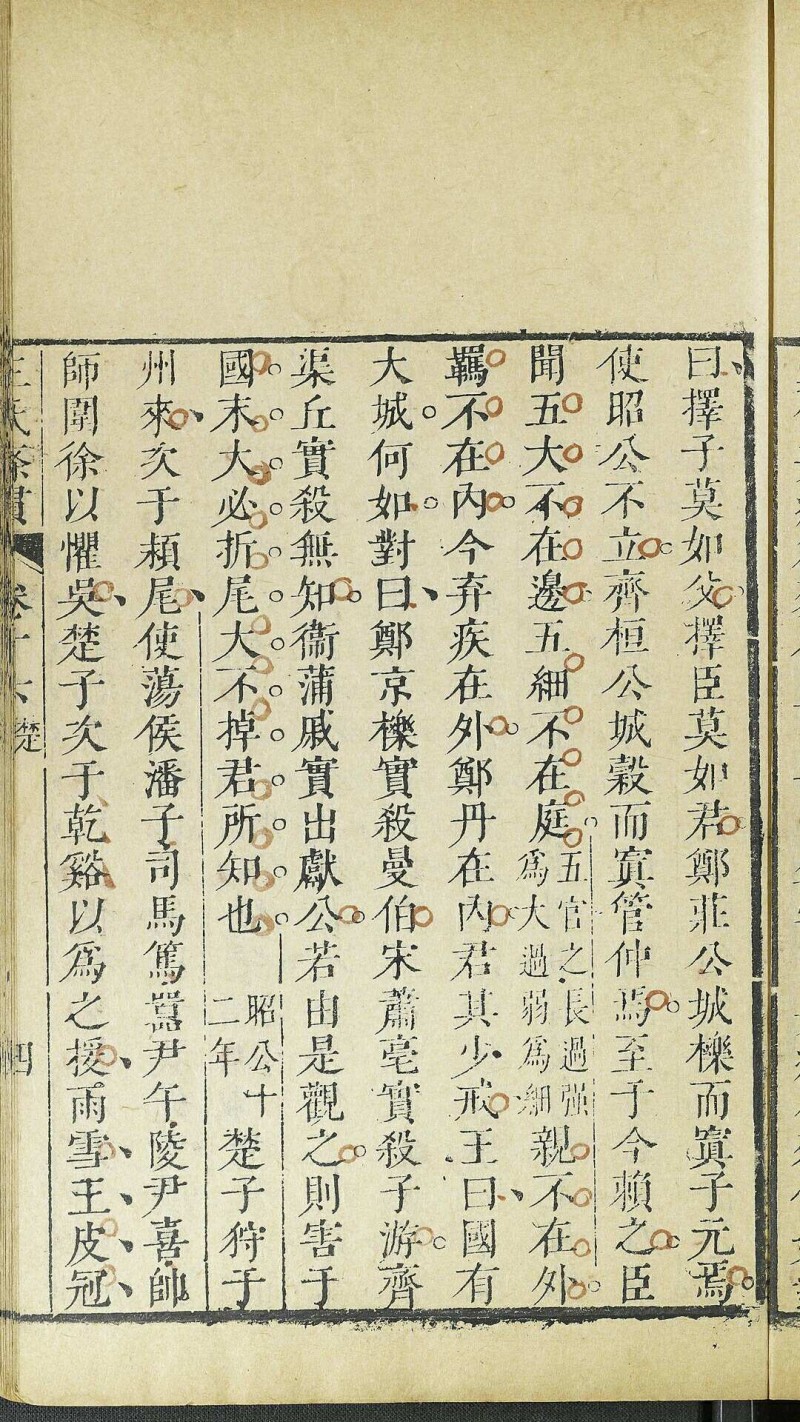 曰擇子莫如父擇臣莫如君鄭莊公城櫟而寘子元焉
使昭公不立齊桓公城穀而寘管仲焉至于今賴之臣
聞五大不在邊五細不在庭五官之長過强爲大過弱爲細親不在外
羈不在內今弃疾在外鄭丹在內君其少戒王曰國有
大城何如對曰鄭京櫟實殺曼伯宋蕭亳實殺子游齊
渠丘實殺無知衞蒲戚實出獻公若由是觀之則害于
國末大必折尾大不掉君所知也昭公十二年楚子狩于
州來次于頴尾使蕩侯潘子司馬篤嚻尹午陵尹喜帥
師圍徐以懼吳楚子次于乾谿以爲之援雨雪王皮冠
卷十六 楚
四